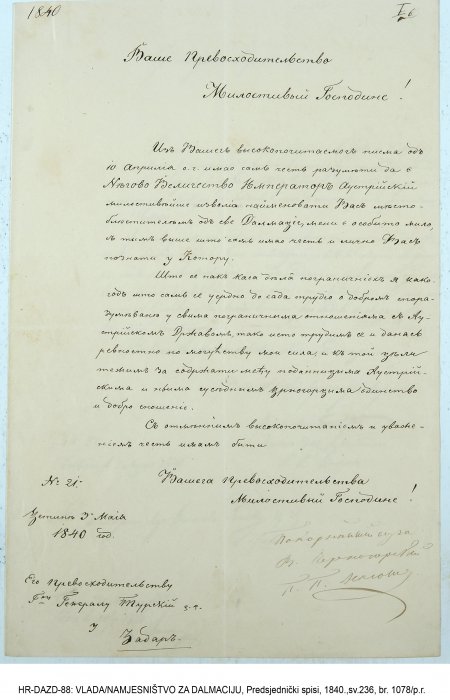 1840
Ваше Превосходительство
Милостивый Господине!
Изъ Вашегъ высокопочитаемогъ писма одъ
10 Априлiя о. г. имао самь честь разумѣти да є
Нѣгово Величество Императоръ Аустрiйскiй
милостивѣйше изволiо наименовати Васъ мѣсто-
блюстителѣмъ одъ све Далмацiе, мени є особито мило,
съ тим више што самь имао честь и лично Васъ
познати у Котору.
Што се пакъ каса дѣлâ пограничнiехъ я како
годъ што самь се усердно до сада трудiо о добромъ спора-
зумлѣню у свима пограничнима отношенiяма съ Ау-
стрiйскомъ Државомъ, тако исто трудимъ се и данасъ
ревностно по могућству мои сила, и къ той цѣли
тежимъ за содржати међу поданницима Аустрiй-
скима и ньима сусѣднимъ Црногорцима единство
и добро сношенiе.
Съ отличнiимъ высокопочитанiемъ и уваже-
нiемъ честь имамъ быти
Вашега Превосходительства
Милостивый Господине!
№ 21.
Цетинѣ 3 Маiя
1840 год.
Покорнѣйшiй слуга
В. Черногорскiй
П. П. Нѣгошъ
Его Превосходительству
Гну Генералу Турскiй
у
Задаръ.
HR-DAZD-88: VLADA/NAMJESNIŠTVO ZA DALMACIJU, Predsjednički spisi, 1840.,sv.236, br. 1078/p.r.